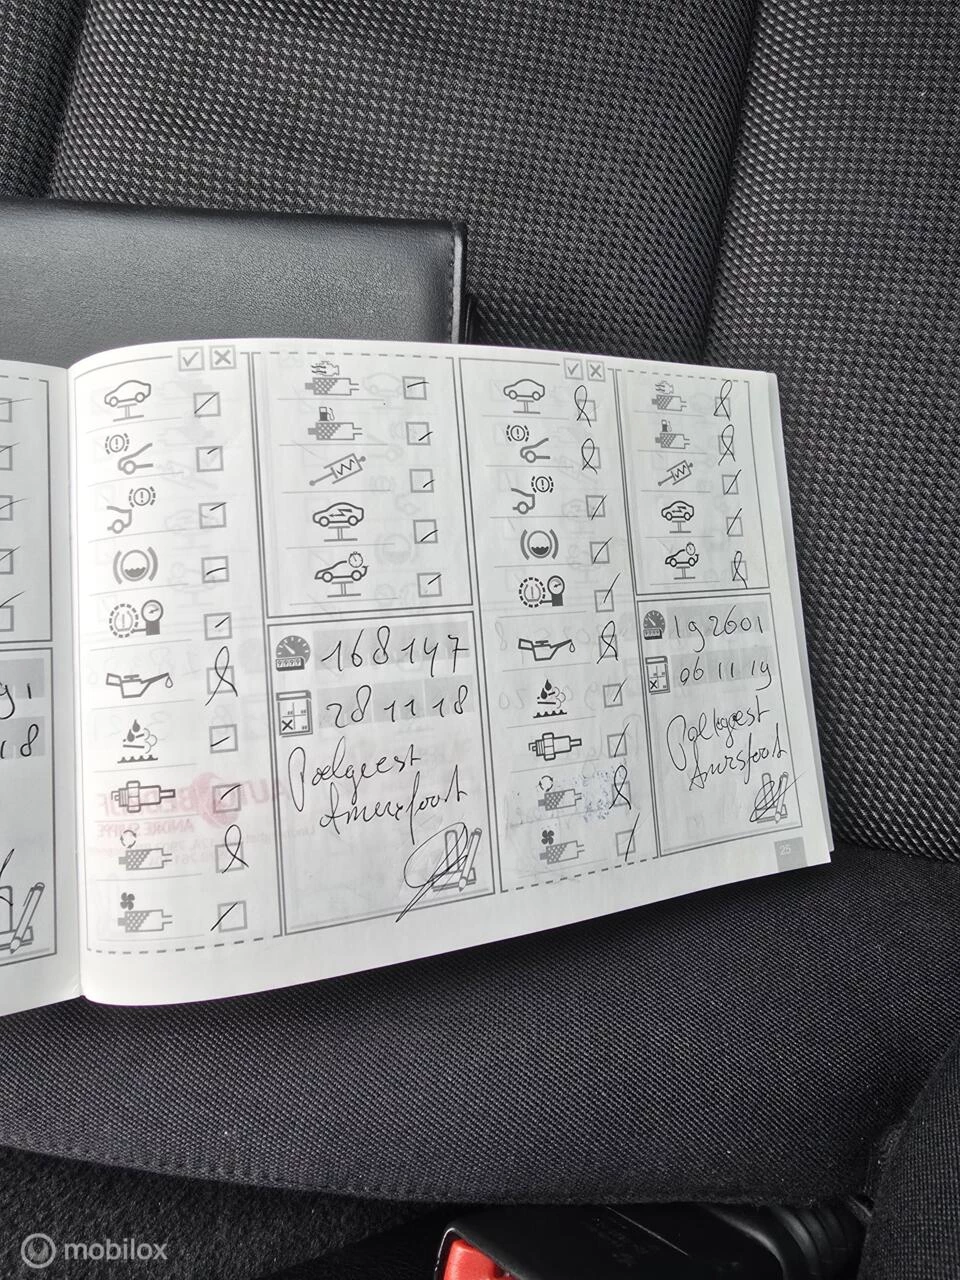 168147
28 11 18
Poelgeest
Amersfoort
192601
06 11 19
Poelgeest
Amersfoort
25
mobilox